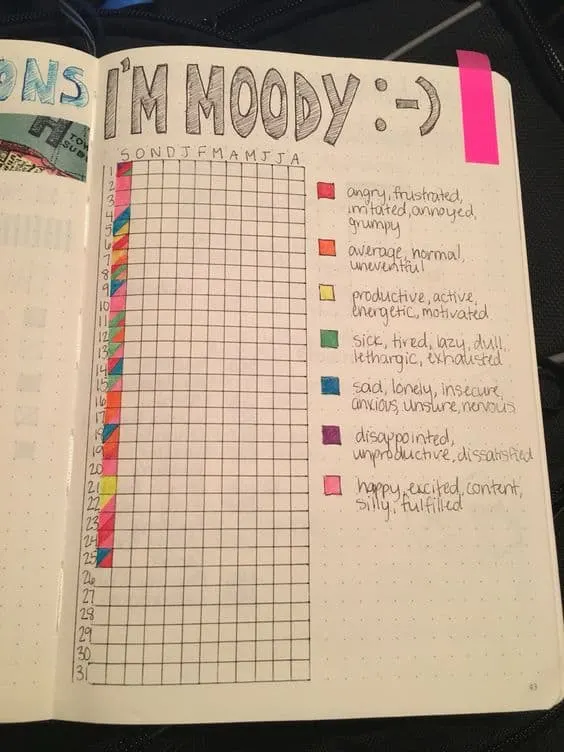 ONS
I'M MOODY :-)
TOW
SUB
S O N D J F M A M J J A
1
2
3
4
5
6
7
8
9
10
11
12
13
14
15
16
17
18
19
20
21
22
23
24
25
26
27
28
29
30
31
angry, frustrated,
irritated, annoyed,
grumpy
average, normal,
uneventful
productive, active,
energetic, motivated
sick, tired, lazy, dull,
lethargic, exhausted
sad, lonely, insecure,
anxious, unsure, nervous
disappointed,
unproductive, dissatisfied
happy, excited, content,
silly, fulfilled
43